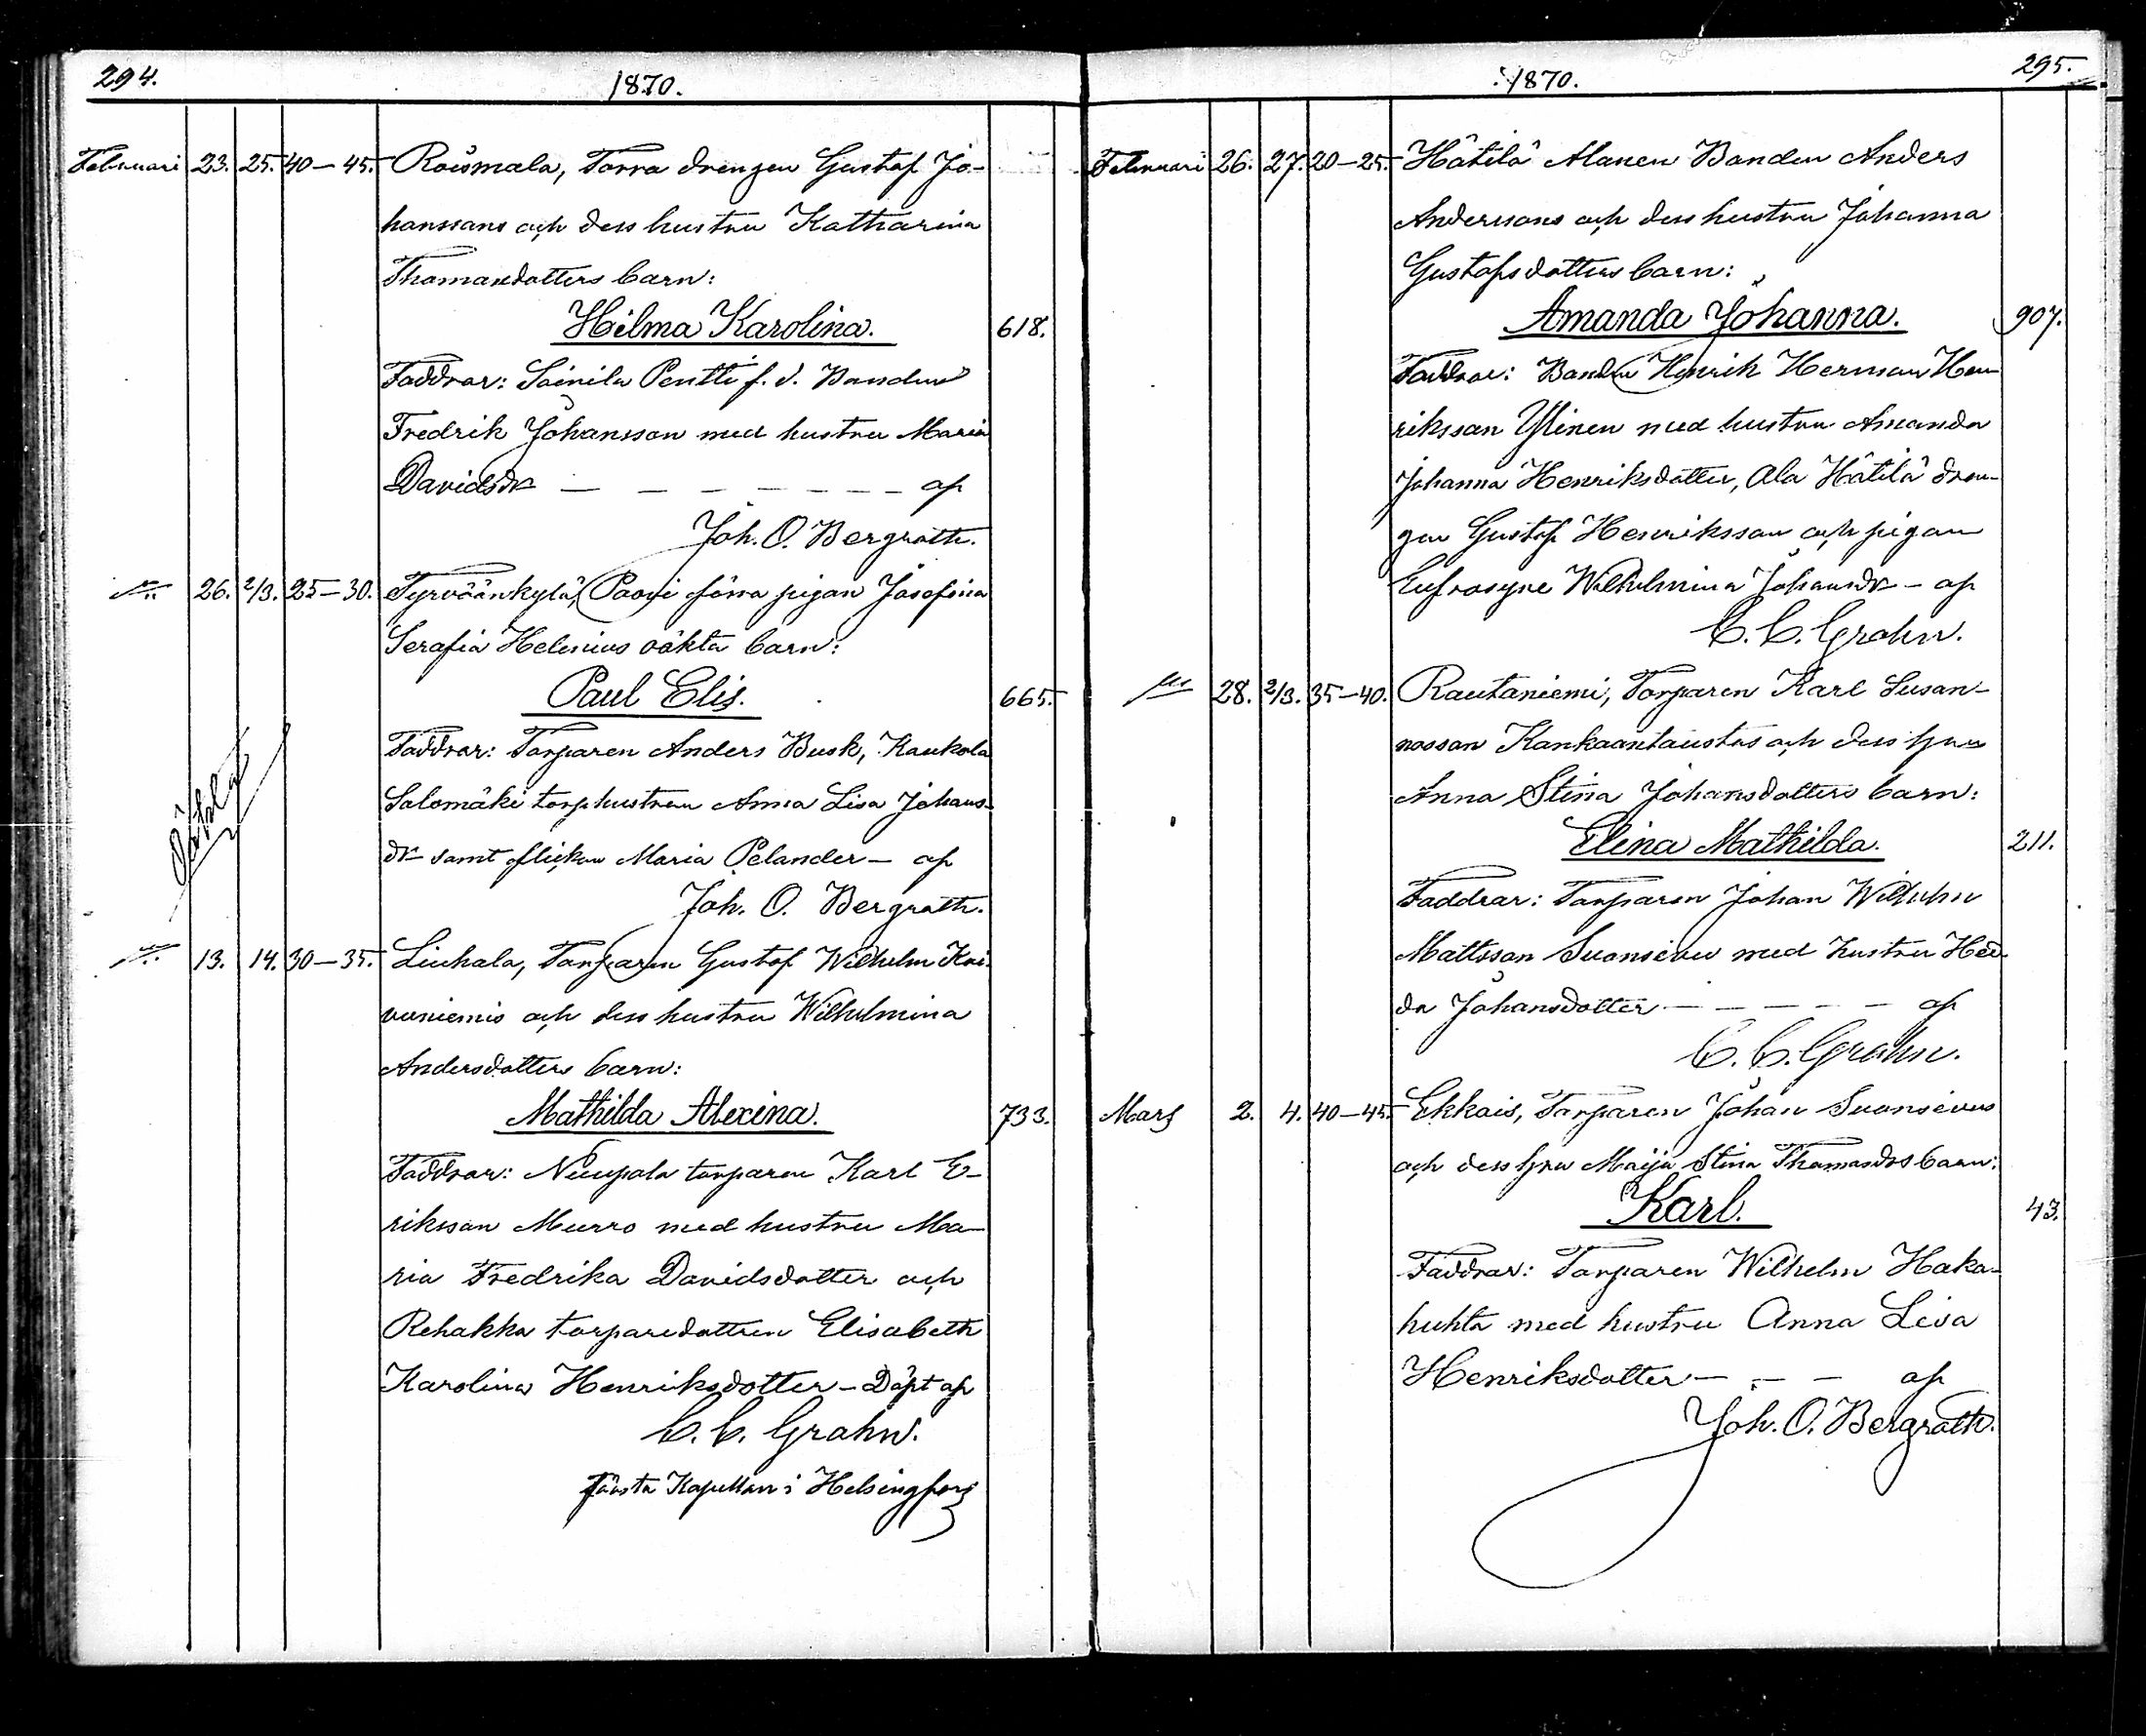 294.
1870.
Februari 23. 25. 40-45. Roismala, Torra drengen Gustaf Jo-
hanssons och dess hustru Katharina
Thomasdotters barn:
Hilma Karolina. 618.
Faddrar: Soinila Pentti f. d. Bonden
Fredrik Johansson med hustru Maria
Davidsdr — — — — — — — af
Joh. O. Bergroth.
26. 2/3. 25-30. Tyrväänkylä, Paavi förra pigan Josefina
Serafia Helenius oäkta barn:
Paul Elis. 665.
Faddrar: Torparen Anders Busk, Kaukola
Salomäki torphustrun Anna Lisa Johans-
dr samt flickan Maria Pelander — af
Joh. O. Bergroth.
Oäkta
13. 14. 30-35. Liuhala, Torparen Gustaf Wilhelm Koi-
vuniemis och dess hustru Wilhelmina
Andersdotters barn:
Mathilda Alexina. 733.
Faddrar: Nuupala torparen Karl E-
riksson Murro med hustru Ma-
ria Fredrika Davidsdotter och
Rehakka torparedottren Elisabeth
Karolina Henriksdotter — Döpt af
C. C. Grahn.
första Kapellan i Helsingfors
295.
1870.
Februari 26. 27. 20-25. Hätilä Alanen Bonden Anders
Anderssons och dess hustru Johanna
Gustafsdotters barn:
Amanda Johanna. 907.
Faddrar: Bonden Henrik Herman Hen-
riksson Ylinen med hustru Amanda
Johanna Henriksdotter, Ala Hätilä dren-
gen Gustaf Henriksson och pigan
Eufrosyne Wilhelmina Johansdr — af
C. C. Grahn.
28. 2/3. 35-40. Rautaniemi, Torparen Karl Susan-
nosson Kankaantaustas och dess hru
Anna Stina Johansdotters barn:
Elina Mathilda. 211.
Faddrar: Torparen Johan Wilhelm
Mattsson Suonsivu med hustru Hed-
da Johansdotter — — — — — af
C. C. Grahn.
Mars 2. 4. 40-45. Ekkais, Torparen Johan Suonsivus
och dess hru Maija Stina Thomasdrs barn:
Karl. 43.
Faddrar: Torparen Wilhelm Haka-
huhta med hustru Anna Lisa
Henriksdotter — — — af
Joh. O. Bergroth.